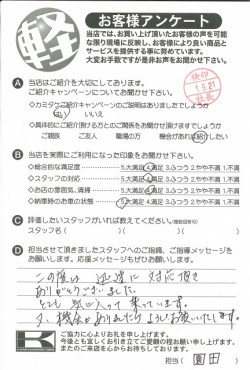 軽
お客様アンケート
当店では、お買い上げ頂いたお客様の声を可能
な限り現場に反映し、お客様により良い商品と
サービスを提供する事に努めています。
大変お手数ですが是非お声をお聞かせ下さい。
検印
1.8.21
Ⓐ 当店はご紹介を大切にしております。
ご紹介キャンペーンについてお聞かせ下さい。
・カミタケご紹介キャンペーンのご説明はありましたでしょうか
はい いいえ
・具体的にご紹介頂ける方とのご関係をお聞かせ頂けますでしょうか
ご親族 ご友人 職場の方 機会があれば紹介したい
Ⓑ 当店を実際にご利用になった印象をお聞かせ下さい。
・総合的な満足度 5.大満足 4.満足 3.ふつう 2.やや不満 1.不満
・スタッフの対応 5.大満足 4.満足 3.ふつう 2.やや不満 1.不満
・お店の雰囲気、清掃 5.大満足 4.満足 3.ふつう 2.やや不満 1.不満
・納車時のお車の状態 5.大満足 4.満足 3.ふつう 2.やや不満 1.不満
Ⓒ 評価したいスタッフがいれば教えてください。(複数回答可)
スタッフ名( )( )( )
Ⓓ 担当させて頂きましたスタッフへのご指摘、ご指導メッセージを
お願いします。応援メッセージもぜひお聞かせ下さい。
この度は 迅速に対応頂き
ありがとうございました。
とても 気に入って 乗っています。
又、機会がありましたらよろしくお願いいたします。
ご協力に心よりお礼を申し上げます。
今後とも宜しくお引き立てご愛顧の程お願い申し上げます。
またのご来店を心からお待ちしております。
担当( 園田 )